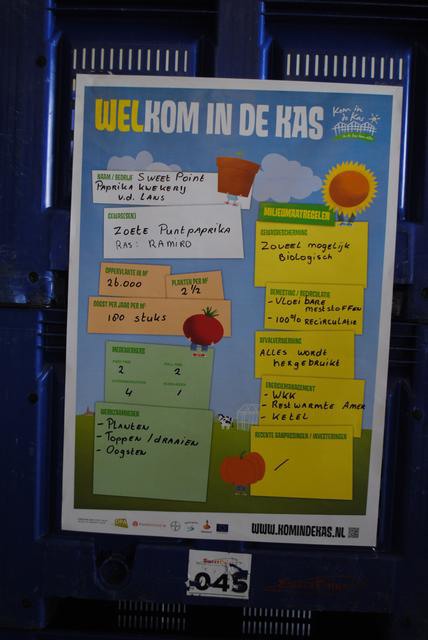 WELKOM IN DE KAS
Kom in de Kas
NAAM / BEDRIJF Sweet Point
Paprika kwekerij
v.d. Lans
GEWAS(SEN)
Zoete Puntpaprika
Ras: Ramiro
OPPERVLAKTE IN M²
26.000
PLANTEN PER M²
2 1/2
OOGST PER JAAR PER M²
180 stuks
MEDEWERKERS
2 2
4 1
WERKZAAMHEDEN
- Planten
- Toppen / draaien
- Oogsten
MILIEUMAATREGELEN
GEWASBESCHERMING
Zoveel mogelijk
Biologisch
BEMESTING / RECIRCULATIE
- Vloeibare
meststoffen
- 100% recirculatie
AFVALVERWERKING
Alles wordt
hergebruikt
ENERGIEMANAGEMENT
- WKK
- Restwarmte Amer
- Ketel
RECENTE AANPASSINGEN / INVESTERINGEN
/
WWW.KOMINDEKAS.NL
045